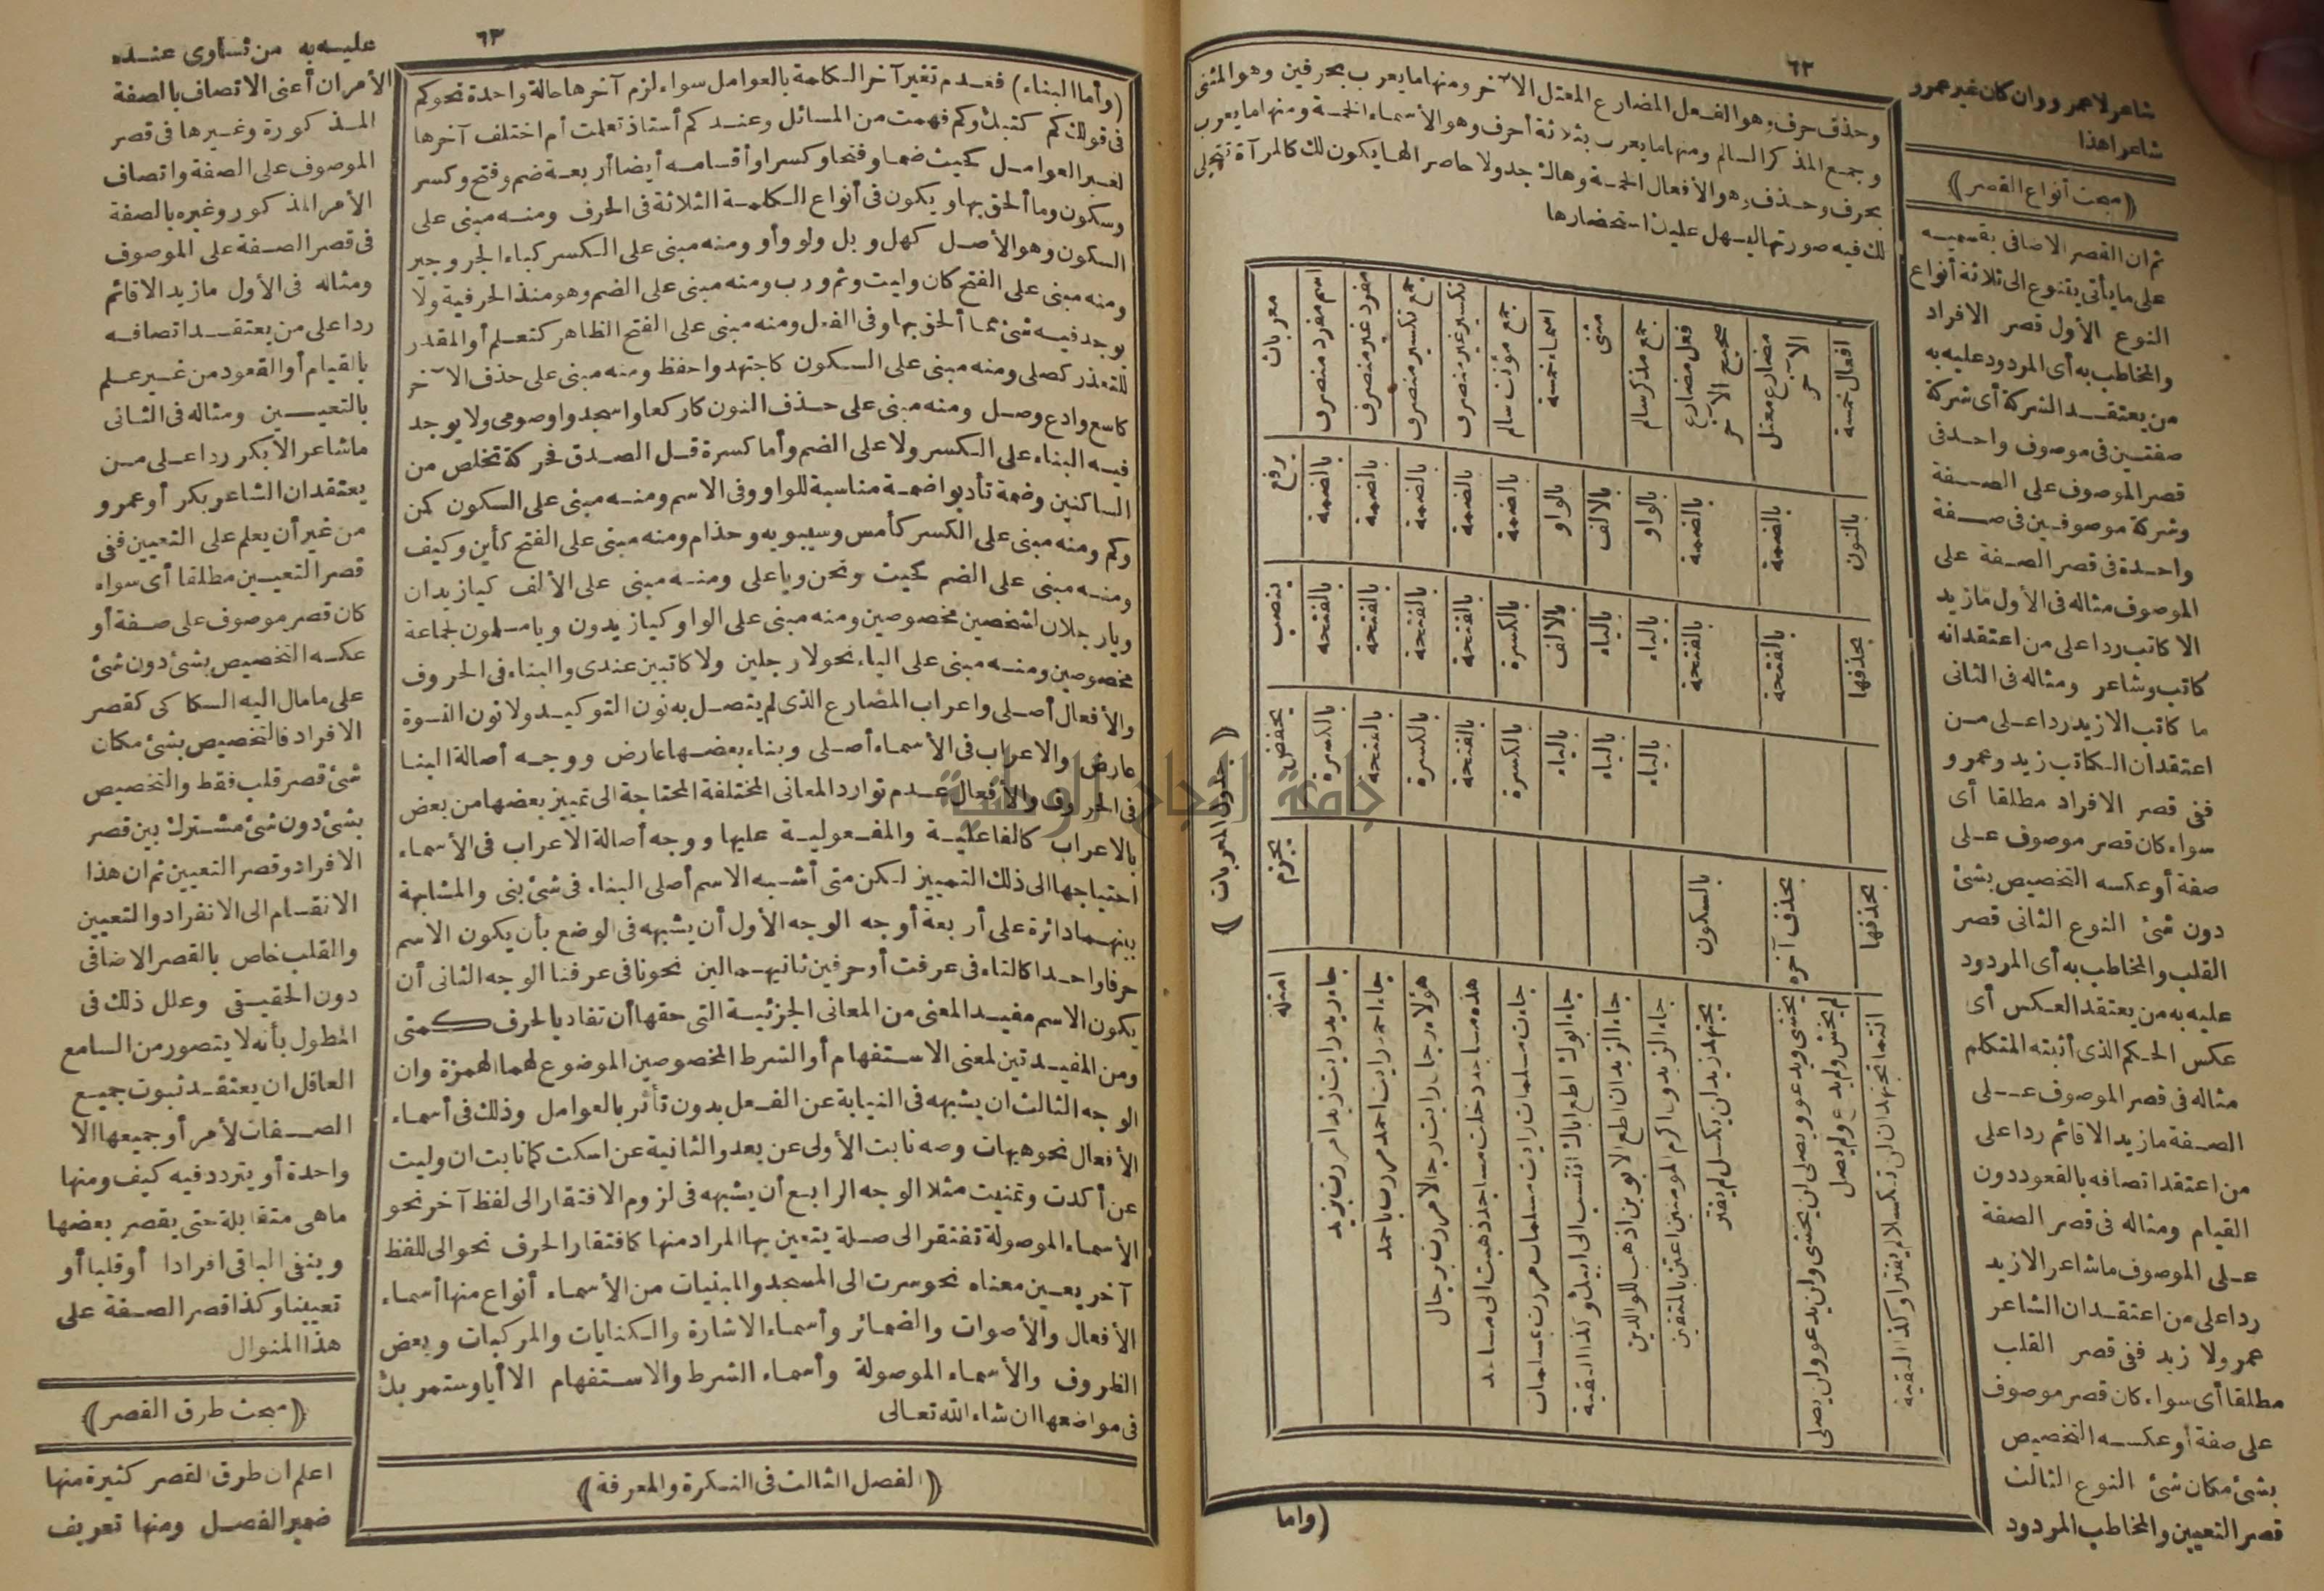 ٦٢
وحذف حرف وهو الفعل المضارع المعتل الآخر ومنها ما يعرب بحرفين وهو المثنى
وجمع المذكر السالم ومنها ما يعرب بثلاثة أحرف وهو الأسماء الخمسة ومنها ما يعرب
بحرف وحذف وهو الأفعال الخمسة وهاك جدولا حاصرا لها يكون لك كالمرآة تتجلى
لك فيه صورتها ليسهل عليك استحضارها
﴿جدول المعربات﴾
معربات يرفع ينصب يخفض يجزم امثلة
اسم مفرد منصرف بالضمة بالفتحة بالكسرة جاء زيد رايت زيدا مررت بزيد
مفرد غير منصرف بالضمة بالفتحة بالفتحة جاء احمد رايت احمد مررت باحمد
جمع تكسير منصرف بالضمة بالفتحة بالكسرة هؤلاء رجال رايت رجالا مررت برجال
تكسير غير منصرف بالضمة بالفتحة بالفتحة هذه مساجد دخلت مساجد ذهبت الى مساجد
جمع مؤنث سالم بالضمة بالكسرة بالكسرة جاءت مسلمات رايت مسلمات مررت بمسلمات
اسماء خمسة بالواو بالالف بالياء جاء ابوك اطع اباك انتسب الى ابيك وكذا البقية
مثنى بالالف بالياء بالياء جاء الزيدان اطع الابوين اذهب للوالدين
جمع مذكر سالم بالواو بالياء بالياء جاء الزيدون اكرم المومنين اعتن بالمتقين
فعل مضارع صحيح الآخر بالضمة بالفتحة بالسكون يجتهد زيد لن يكسل لم يفتر
مضارع معتل الآخر بالضمة بالفتحة بحذف آخره يخشى ويدعو ويصلى لن يخشى ولن يدعو ولن يصلى
لم يخش ولم يدع ولم يصل
افعال خمسة بالنون بحذفها بحذفها انتما تجتهدان لن تكسلا لم يفترا وكذا البقية
(واما
شاعر لا عمرو وان كان غير عمرو
شاعرا هذا
﴿مبحث أنواع القصر﴾
ثم ان القصر الاضافى بقسميه
على ما يأتى يتنوع الى ثلاثة أنواع
النوع الأول قصر الافراد
والمخاطب به أى المردود عليه به
من يعتقد الشركة أى شركة
صفتين فى موصوف واحد فى
قصر الموصوف على الصفة
وشركة موصوفين فى صفة
واحدة فى قصر الصفة على
الموصوف مثاله فى الأول ما زيد
الا كاتب ردا على من اعتقد انه
كاتب وشاعر ومثاله فى الثانى
ما كاتب الا زيد ردا على من
اعتقد ان الكاتب زيد وعمرو
ففى قصر الافراد مطلقا أى
سواء كان قصر موصوف على
صفة أو عكسه التخصيص بشئ
دون شئ النوع الثانى قصر
القلب والمخاطب به أى المردود
عليه به من يعتقد العكس أى
عكس الحكم الذى أثبته المتكلم
مثاله فى قصر الموصوف على
الصفة ما زيد الا قائم ردا على
من اعتقد اتصافه بالقعود دون
القيام ومثاله فى قصر الصفة
على الموصوف ما شاعر الا زيد
ردا على من اعتقد ان الشاعر
عمر ولا زيد ففى قصر القلب
مطلقا أى سواء كان قصر موصوف
على صفة أو عكسه التخصيص
بشئ مكان شئ النوع الثالث
قصر التعيين والمخاطب المردود
٦٣
(وأما البناء) فعدم تغير آخر الكلمة بالعوامل سواء لزم آخرها حالة واحدة نحو كم
فى قولك كم كتبك وكم فهمت من المسائل وعندكم أستاذ تعلمت أم اختلف آخرها
لغير العوامل كحيث ضما وفتحا وكسرا وأقسامه أيضا أربعة ضم وفتح وكسر
وسكون وما ألحق بها ويكون فى أنواع الكلمة الثلاثة فى الحرف ومنه مبنى على
السكون وهو الأصل كهل وبل ولو وأو ومنه مبنى على الكسر كباء الجر وجير
ومنه مبنى على الفتح كان وليت وثم ورب ومنه مبنى على الضم وهو منذ الحرفية ولا
يوجد فيه شئ مما ألحق بها وفى الفعل ومنه مبنى على الفتح الظاهر كتعلم أو المقدر
للتعذر كصلى ومنه مبنى على السكون كاجتهد واحفظ ومنه مبنى على حذف الآخر
كاسع وادع وصل ومنه مبنى على حذف النون كاركعا واسجدوا وصومى ولا يوجد
فيه البناء على الكسر ولا على الضم وأما كسرة قل الصدق فحركة تخلص من
الساكنين وضمة تأدبوا ضمة مناسبة للواو وفى الاسم ومنه مبنى على السكون كمن
وكم ومنه مبنى على الكسر كأمس وسيبويه وحذام ومنه مبنى على الفتح كأين وكيف
ومنه مبنى على الضم كحيث ونحن ويا على ومنه مبنى على الألف كيا زيدان
ويا رجلان لشخصين مخصوصين ومنه مبنى على الواو كيا زيدون ويا مسلمون لجماعة
مخصوصين ومنه مبنى على الياء نحو لا رجلين ولا كاتبين عندى والبناء فى الحروف
والأفعال أصلى واعراب المضارع الذى لم يتصل به نون التوكيد ولا نون النسوة
عارض والاعراب فى الأسماء أصلى وبناء بعضها عارض ووجه أصالة البنا
فى الحروف والأفعال عدم توارد المعانى المختلفة المحتاجة الى تمييز بعضها من بعض
بالاعراب كالفاعلية والمفعولية عليها ووجه أصالة الاعراب فى الأسماء
احتياجها الى ذلك التمييز لكن متى أشبه الاسم أصلى البناء فى شئ بنى والمشابهة
بينهما دائرة على أربعة أوجه الوجه الأول أن يشبهه فى الوضع بأن يكون الاسم
حرفا واحدا كالتاء فى عرفت أو حرفين ثانيهما لين نحو نا فى عرفنا الوجه الثانى أن
يكون الاسم مفيد المعنى من المعانى الجزئية التى حقها أن تفاد بالحرف كمتى
ومن المفيدتين لمعنى الاستفهام أو الشرط المخصوصين الموضوع لهما الهمزة وان
الوجه الثالث ان يشبهه فى النيابة عن الفعل بدون تأثر بالعوامل وذلك فى أسماء
الأفعال نحو هيهات وصه نابت الأولى عن بعد والثانية عن اسكت كما نابت ان وليت
عن أكدت وتمنيت مثلا الوجه الرابع أن يشبهه فى لزوم الافتقار الى لفظ آخر نحو
الأسماء الموصولة تفتقر الى صلة يتعين بها المراد منها كافتقار الحرف نحو الى للفظ
آخر يعين معناه نحو سرت الى المسجد والمبنيات من الأسماء أنواع منها أسماء
الأفعال والأصوات والضمائر وأسماء الاشارة والكنايات والمركبات وبعض
الظروف والأسماء الموصولة وأسماء الشرط والاستفهام الا أيا وستمر بك
فى مواضعها ان شاء الله تعالى
﴿الفصل الثالث فى النكرة والمعرفة﴾
عليه به من تساوى عنده
الأمران أعنى الاتصاف بالصفة
المذكورة وغيرها فى قصر
الموصوف على الصفة واتصاف
الأمر المذكور وغيره بالصفة
فى قصر الصفة على الموصوف
ومثاله فى الأول ما زيد الا قائم
ردا على من يعتقد اتصافه
بالقيام أو القعود من غير علم
بالتعيين ومثاله فى الثانى
ما شاعر الا بكر ردا على من
يعتقد ان الشاعر بكر أو عمرو
من غير أن يعلم على التعيين ففى
قصر التعيين مطلقا أى سواء
كان قصر موصوف على صفة أو
عكسه التخصيص بشئ دون شئ
على ما مال اليه السكاكى كقصر
الافراد فالتخصيص بشئ مكان
شئ قصر قلب فقط والتخصيص
بشئ دون شئ مشترك بين قصر
الافراد وقصر التعيين ثم ان هذا
الانقسام الى الانفراد والتعيين
والقلب خاص بالقصر الاضافى
دون الحقيقى وعلل ذلك فى
المطول بأنه لا يتصور من السامع
العاقل ان يعتقد ثبوت جميع
الصفات لأمر أو جميعها الا
واحدة أو يتردد فيه كيف ومنها
ما هى متقابلة حتى يقصر بعضها
وينفى الباقى افرادا أو قلبا أو
تعيينا وكذا قصر الصفة على
هذا المنوال
﴿مبحث طرق القصر﴾
اعلم ان طرق القصر كثيرة منها
ضمير الفصل ومنها تعريف
جامعة النجاح الوطنية